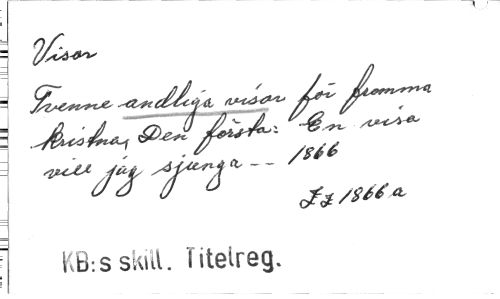 Visor
Tvenne andliga visor för fromma
kristna, Den första: En visa
vill jag sjunga -- 1866
Zz 1866 a
KB:s skill. Titelreg.